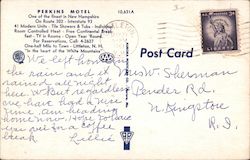 PERKINS MOTEL 10,631A
One of the Finest in New Hampshire
On Route 302 - Interstate 93
41 Modern Units - Tile Showers & Tubs - Individual
Room Controlled Heat - Free Continental Break-
fast - TV in Rooms - Open Year 'Round.
For Reservations, Call 4-2627
One-half Mile to Town - Littleton, N. H.
In the heart of the White Mountains
Post Card
We left home in
the rain and it
rained all night
here. But regardless
we have had a nice
time. am heading
home now. Hope to have
you get for a coffee
break
Mrs W. Sherman
Pender Rd.
N. Kingston
R.I.